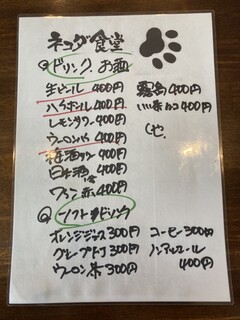 ネコダ食堂
ドリンク、お酒
生ビール 400円
ハイボール 400円
レモンサワー 400円
ウーロンハイ 400円
梅酒サワー 400円
日本酒 400円
ワイン 赤 400円
霧島 400円
400円
ソフトドリンク
オレンジジュース 300円
グレープ 300円
ウーロン茶 300円
コーヒー 300円
ノンアルコール
400円